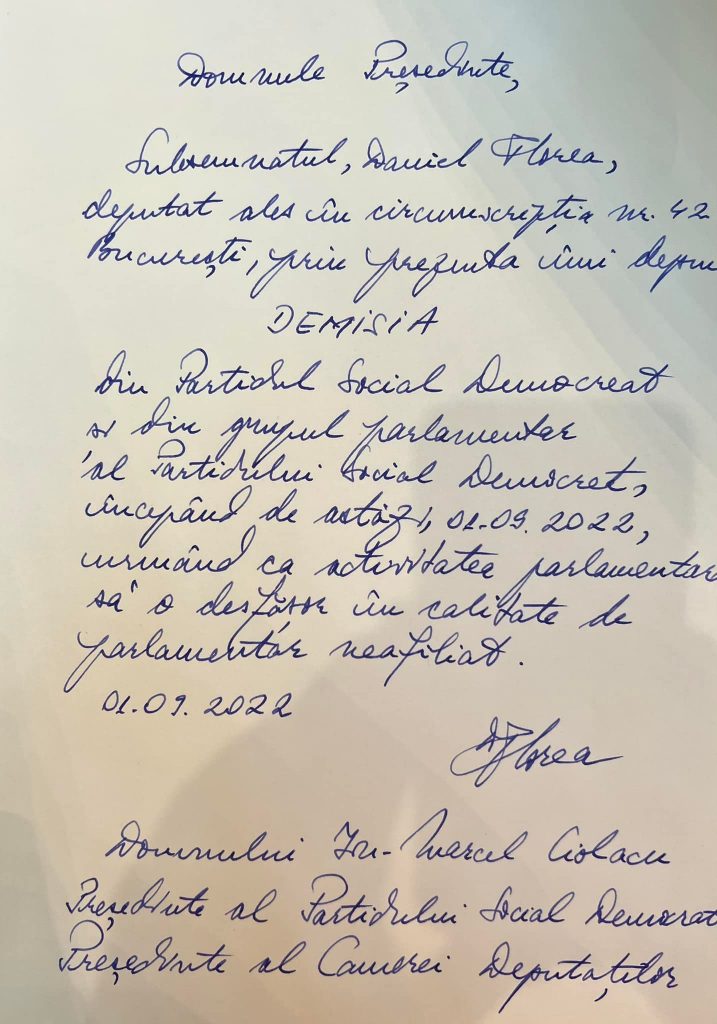 Domnule Președinte,
Subsemnatul, Daniel Florea,
deputat ales în circumscripția nr. 42
București, prin prezenta îmi depun
DEMISIA
din Partidul Social Democreat
și din grupul parlamentar
al Partidului Social Democrat,
începând de astăzi, 01.09.2022,
urmând ca activitatea parlamentară
să o desfășor în calitate de
parlamentar neafiliat.
01.09.2022
DFlorea
Domnului Ion-Marcel Ciolacu
Președinte al Partidului Social Democrat
Președinte al Camerei Deputaților